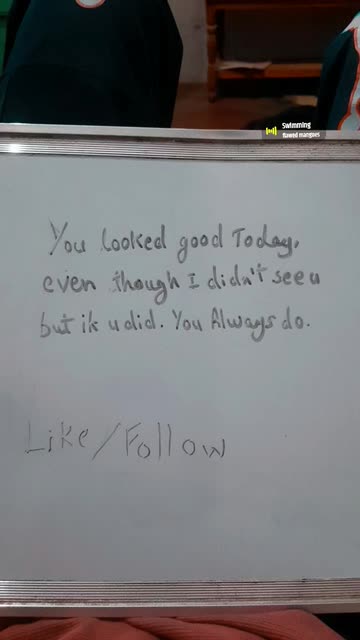 Swimming
flawed mangoes
You looked good Today,
even though I didn't see u
but ik u did. You Always do.
Like/Follow